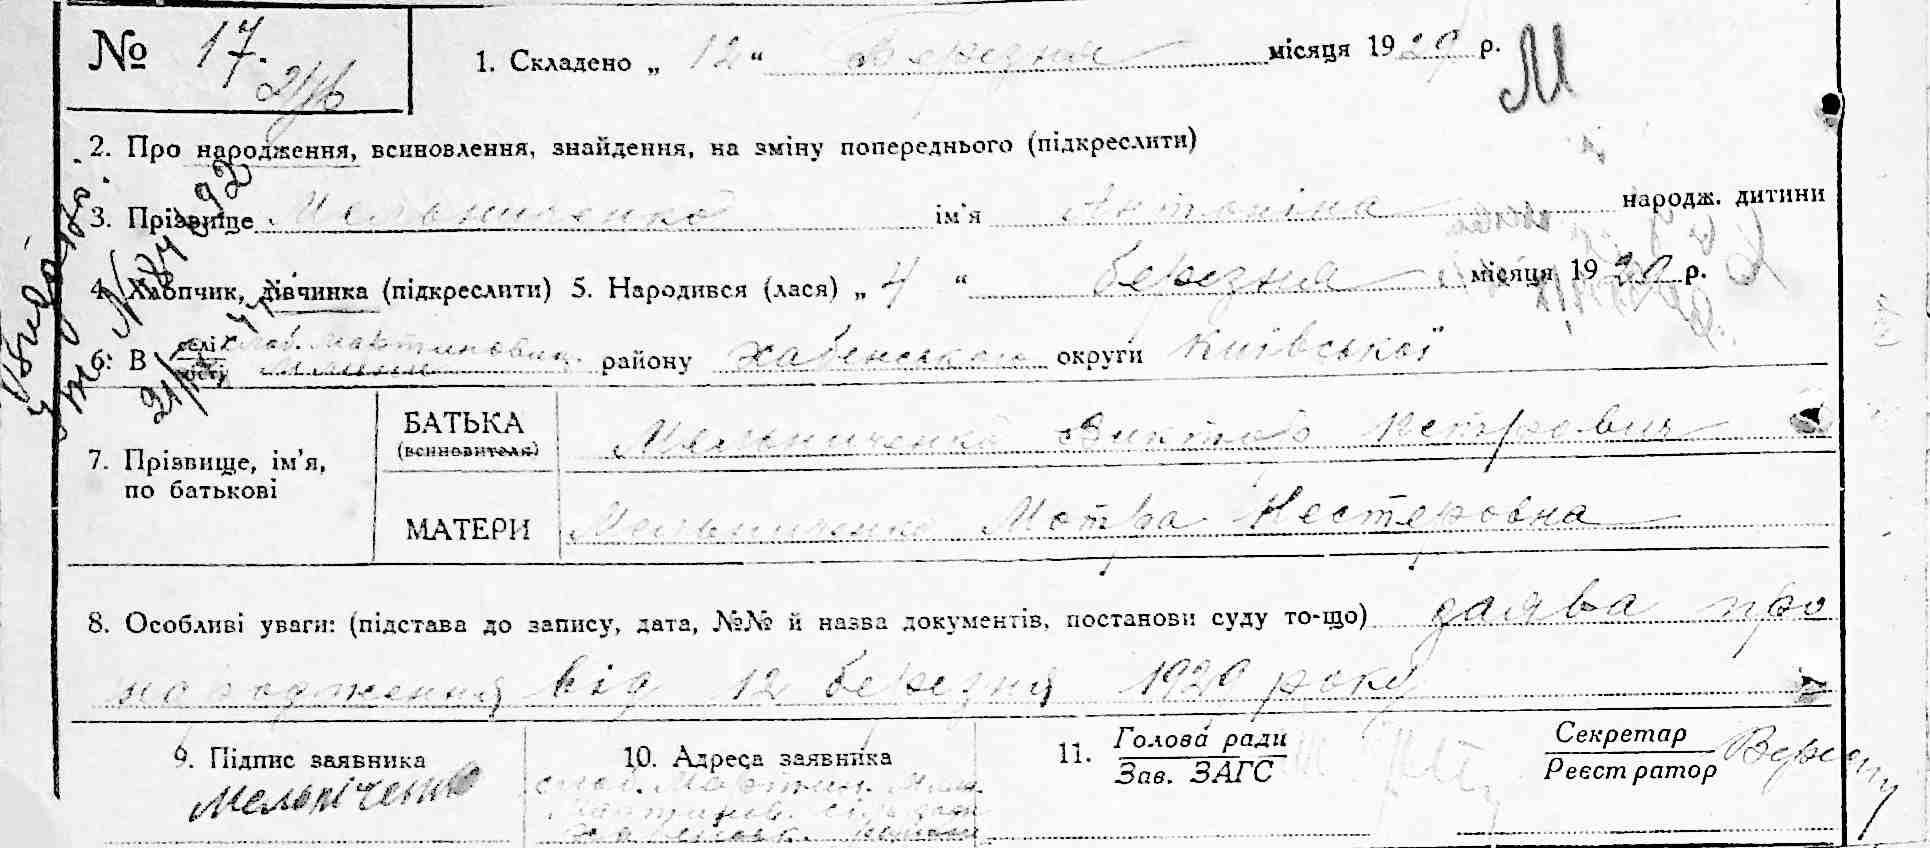 № 17.
1. Складено „ 12 “ Березня місяця 1929 р.
М
2. Про народження, всиновлення, знайдення, на зміну попереднього (підкреслити)
3. Прізвище Мельниченко ім'я Антоніна народж. дитини
4. Хлопчик, дівчинка (підкреслити) 5. Народився (лася) „ 4 “ березня місяця 1929 р.
6. В селі слоб. Мартинович. району Хабенського округи Київської
7. Прізвище, ім'я, по батькові
БАТЬКА (всиновителя) Мельниченко Виктор Петрович
МАТЕРИ Мельниченко Мотра Нестеровна
8. Особливі уваги: (підстава до запису, дата, №№ й назва документів, постанови суду то-що) заява про
народження від 12 березня 1929 року
9. Підпис заявника
Мельніченко
10. Адреса заявника
слоб. Мартин.
11. Голова ради
Зав. ЗАГС
Секретар
Реєстратор